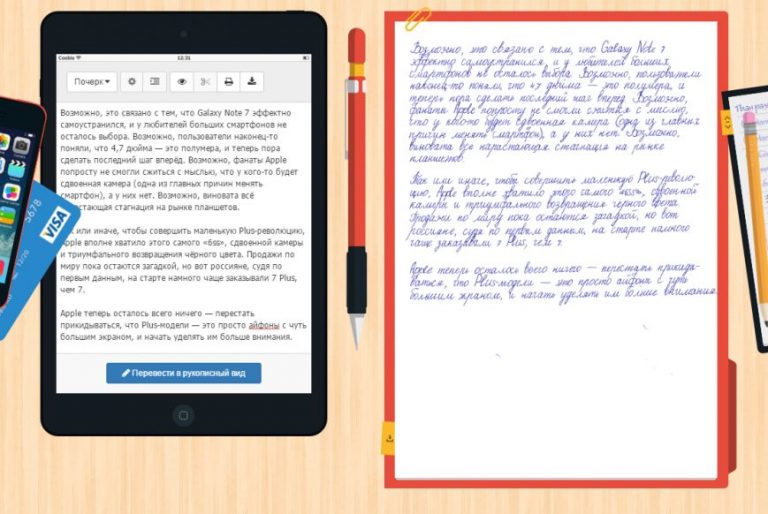 Cookie
12:31
Почерк
Возможно, это связано с тем, что Galaxy Note 7 эффектно
самоустранился, и у любителей больших смартфонов не
осталось выбора. Возможно, пользователи наконец-то
поняли, что 4,7 дюйма — это полумера, и теперь пора
сделать последний шаг вперёд. Возможно, фанаты Apple
попросту не смогли сжиться с мыслью, что у кого-то будет
сдвоенная камера (одна из главных причин менять
смартфон), а у них нет. Возможно, виновата всё
стагнация на рынке планшетов.
или иначе, чтобы совершить маленькую Plus-революцию,
Apple вполне хватило этого самого «6ss», сдвоенной камеры
и триумфального возвращения чёрного цвета. Продажи по
миру пока остаются загадкой, но вот россияне, судя по
первым данным, на старте намного чаще заказывали 7 Plus,
чем 7.
Apple теперь осталось всего ничего — перестать
прикидываться, что Plus-модели — это просто айфоны с чуть
большим экраном, и начать уделять им больше внимания.
Перевести в рукописный вид
5678
12/20
VISA
Возможно, это связано с тем, что Galaxy Note 7
эффектно самоустранился, и у любителей больших
смартфонов не осталось выбора. Возможно, пользователи
наконец-то поняли, что 4,7 дюйма — это полумера, и
теперь пора сделать последний шаг вперед. Возможно,
фанаты Apple попросту не смогли сжиться с мыслью,
что у кого-то будет сдвоенная камера (одна из главных
причин менять смартфон), а у них нет. Возможно,
виновата всё нарастающая стагнация на рынке
планшетов.
Как или иначе, чтобы совершить маленькую Plus-револю-
цию, Apple вполне хватило этого самого «6ss», сдвоенной
камеры и триумфального возвращения черного цвета.
Продажи по миру пока остаются загадкой, но вот
россияне, судя по первым данным, на старте намного
чаще заказывали 7 Plus, чем 7.
Apple теперь осталось всего ничего — перестать прикиды-
ваться, что Plus-модели — это просто айфоны с чуть
большим экраном, и начать уделять им больше внимания.